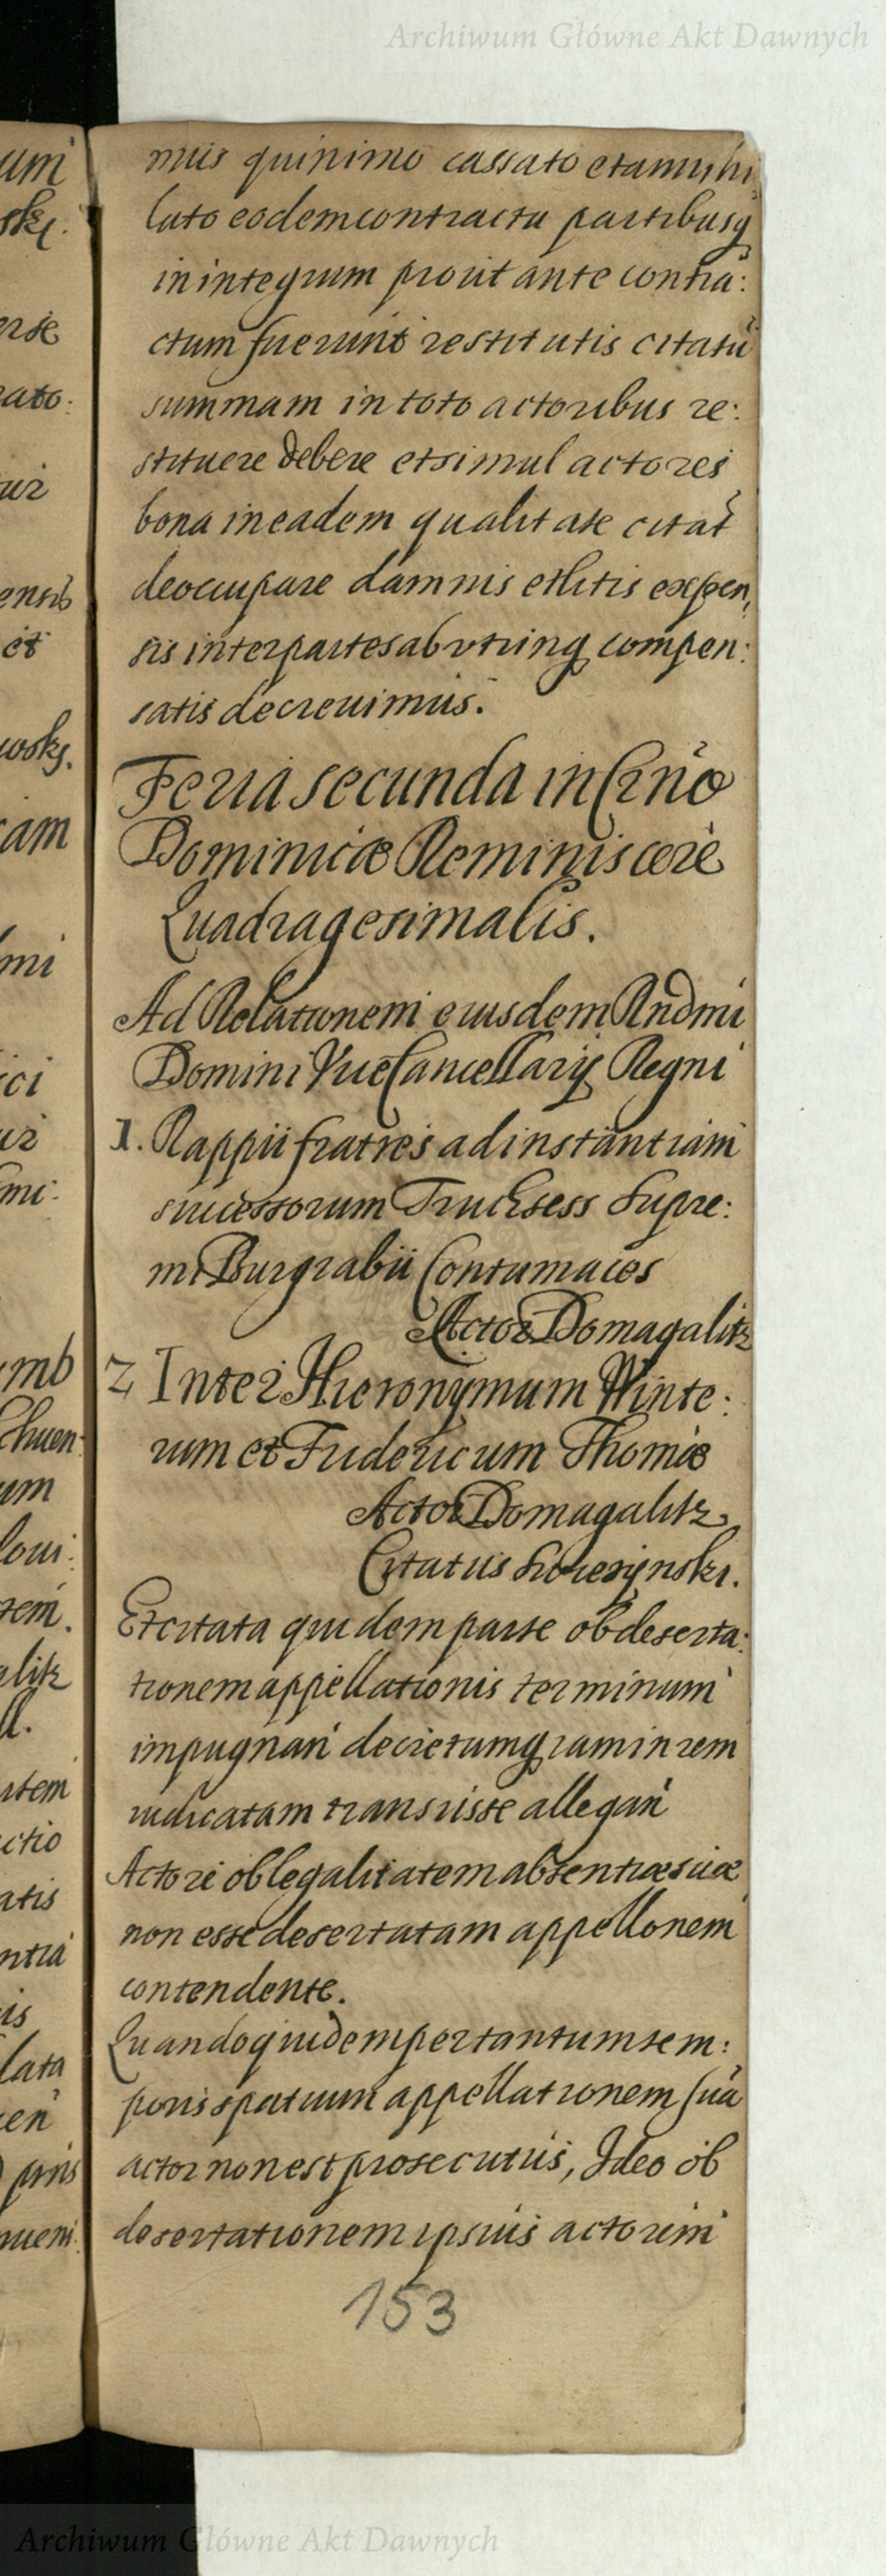 Archiwum Główne Akt Dawnych
mus quinimo cassato et annihi
lato eodem contractu partibusq
in integrum prout ante contra:
ctum fuerunt restitutis citatū
summam in toto actoribus re:
stituere debere et simul actores
bona in eadem qualitate citat
deoccupare damnis et litis expen,
sis inter partes ab utrinq compen:
satis decrevimus.
Feria secunda in Crño
Dominicæ Reminiscere
Quadragesimalis.
Ad Relationem eiusdem Rndmi
Domini ViceCancellarij Regni
1. Rappii fratres ad instantiam
successorum Truchsess Supre:
mi Burgrabii Contumaces
Actor Domagalitz
2 Inter Hieronymum Winte:
rum et Fridericum Thomæ
Actor Domagalitz
Citatus
Et citata quidem parte ob deserta:
tionem appellationis terminum
impugnan decretumq iam in rem
iudicatam transisse allegan
Actore ob legalitatem absentiæ suæ
non esse desertatam appellonem
contendente.
Quandoquidem per tantum tem:
poris spatium appellationem suā
actor non est prosecutus, Ideo ob
desertationem ipsius actorem
153
um
ski.
erse
cato:
tur
ensib
et
woski.
cam
mi
ici
ur
mi:
ymb
Chuen:
um
loui:
rem.
alitz
ll.
artem
actio
atis
ntia
is
lata
uen
Archiwum Główne Akt Dawnych